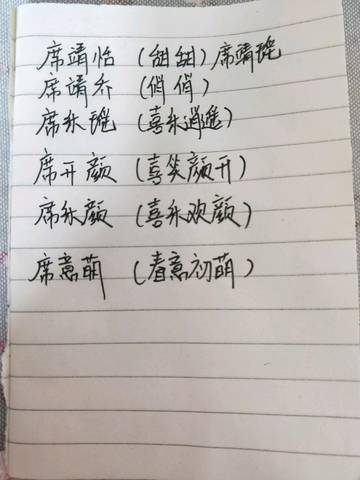 席靖怡（甜甜）席晴瑶
席靖乔（俏俏）
席乐瑶（喜乐逍遥）
席开颜（喜笑颜开）
席乐颜（喜乐欢颜）
席意萌（春意初萌）